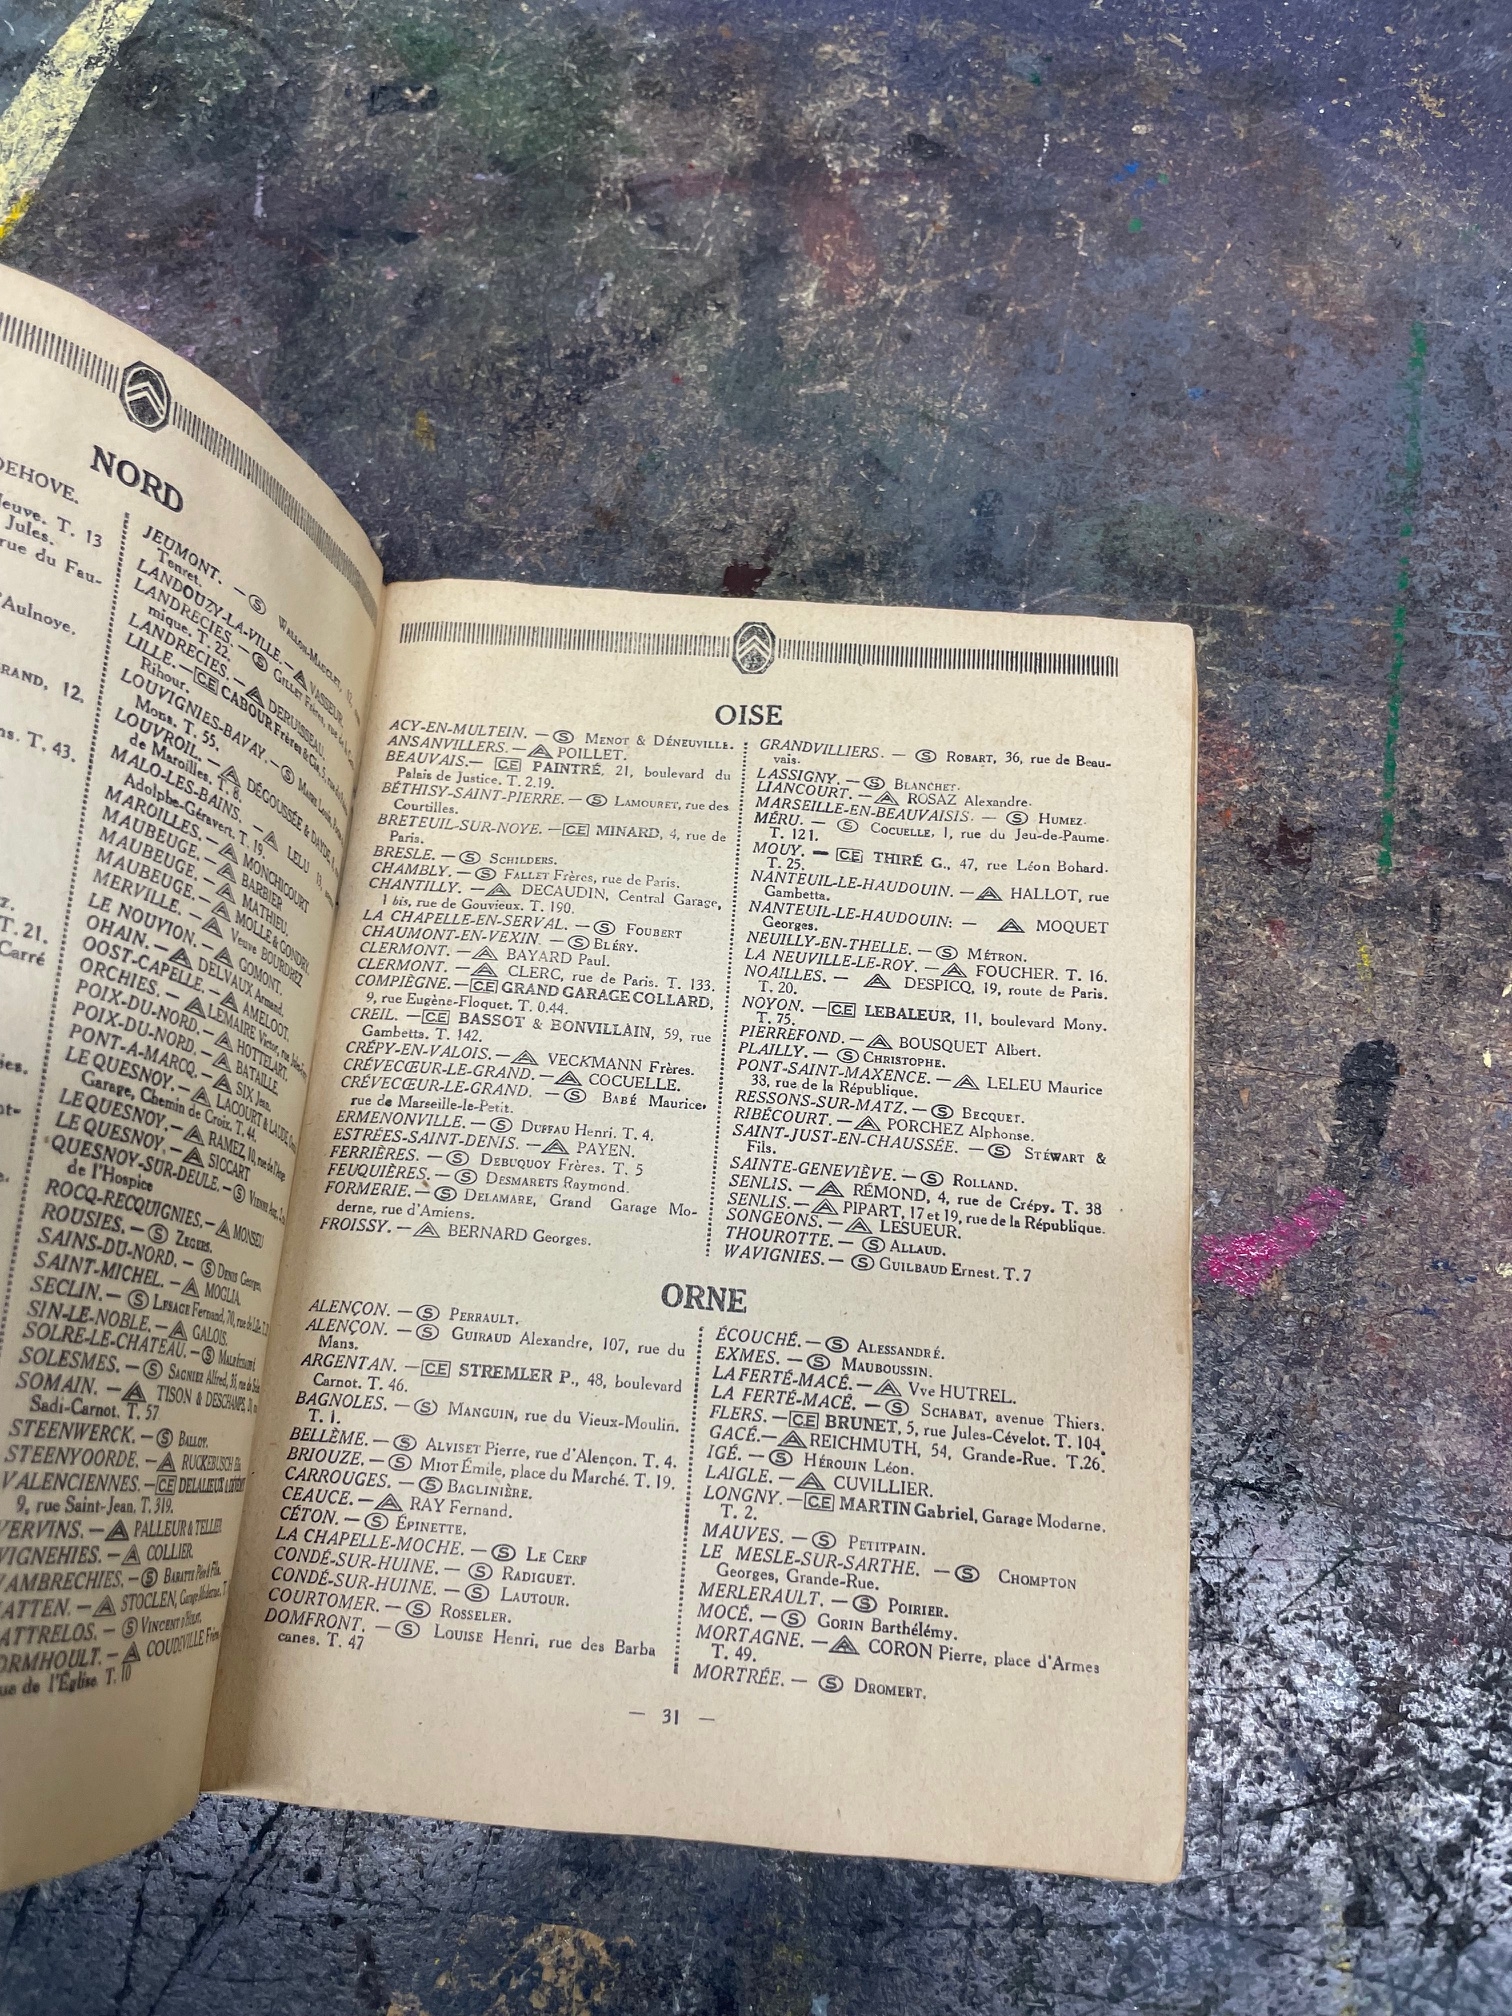 NORD
DEHOVE.
T. 13
Jules.
rue du Fau-
Aulnoye.
12,
T. 43.
T. 21.
Carré
JEUMONT. — Ⓢ
Tenret.
LANDOUZY-LA-VILLE. — VASSEUR.
LANDRECIES. — Ⓢ GILLET Frères,
mique. T. 22.
LANDRECIES. — DERUISSEAU.
LILLE. — C.E CABOUR Frères & Cie, 5,
Rihour.
LOUVIGNIES-BAVAY. — Ⓢ
Mons. T. 55.
LOUVROIL. — DÉGOUSSÉE &
de Maroilles. T. 8.
MALO-LES-BAINS. — LELU
Adolphe-Géravert. T. 19.
MAROILLES. — MONCHICOURT
MAUBEUGE. — BARBIER
MAUBEUGE. — MATHIEU.
MAUBEUGE. — MOLLE & GONDRY.
MERVILLE. — Veuve BOURDREZ
LE NOUVION. — GOMONT.
OHAIN. — DELVAUX Armand.
OOST-CAPELLE. — AMELOOT.
ORCHIES. — LEMAIRE Victor,
POIX-DU-NORD. — HOTTELART.
POIX-DU-NORD. — BATAILLE.
PONT-A-MARCQ. — SIX Jean.
LE QUESNOY. — LACOURT & LAUDE,
Garage, Chemin de Croix. T. 44.
LE QUESNOY. — RAMEZ, 10, rue de
LE QUESNOY. — SICCART
QUESNOY-SUR-DEULE. — Ⓢ
de l'Hospice
ROCQ-RECQUIGNIES. — MONSEU
ROUSIES. — Ⓢ ZEGERS.
SAINS-DU-NORD. — Ⓢ DENIS Georges.
SAINT-MICHEL. — MOGLIA
SECLIN. — Ⓢ LESAGE Fernand, 70, rue de Lille.
SIN-LE-NOBLE. — GALOIS.
SOLRE-LE-CHATEAU. — Ⓢ
SOLESMES. — Ⓢ SAGNIEZ Alfred, 35, rue de
SOMAIN. — TISON & DESCHAMPS,
Sadi-Carnot. T. 57
STEENWERCK. — Ⓢ BALLOY.
STEENVOORDE. — RUCKEBUSCH
VALENCIENNES. — C.E DELALIEUX &
9, rue Saint-Jean. T. 319.
VERVINS. — PALLEUR & TELLIER
VIGNEHIES. — COLLIER.
WAMBRECHIES. — Ⓢ BARATTE Père & Fils.
WATTEN. — STOCLEN, Garage Moderne.
WATTRELOS. — Ⓢ VINCENT
WORMHOULT. — COUDEVILLE
rue de l'Église T. 10
OISE
ACY-EN-MULTEIN. — Ⓢ MENOT & DÉNEUVILLE.
ANSANVILLERS. — POILLET.
BEAUVAIS. — C.E PAINTRÉ, 21, boulevard du
Palais de Justice. T. 2.19.
BÉTHISY-SAINT-PIERRE. — Ⓢ LAMOURET, rue des
Courtilles.
BRETEUIL-SUR-NOYE. — C.E MINARD, 4, rue de
Paris.
BRESLE. — Ⓢ SCHILDERS.
CHAMBLY. — Ⓢ FALLET Frères, rue de Paris.
CHANTILLY. — DECAUDIN, Central Garage,
1 bis, rue de Gouvieux. T. 190.
LA CHAPELLE-EN-SERVAL. — Ⓢ FOUBERT
CHAUMONT-EN-VEXIN. — Ⓢ BLÉRY.
CLERMONT. — BAYARD Paul.
CLERMONT. — CLERC, rue de Paris. T. 133.
COMPIÈGNE. — C.E GRAND GARAGE COLLARD,
9, rue Eugène-Floquet. T. 0.44.
CREIL. — C.E BASSOT & BONVILLAIN, 59, rue
Gambetta. T. 142.
CRÉPY-EN-VALOIS. — VECKMANN Frères.
CRÉVECŒUR-LE-GRAND. — COCUELLE.
CRÉVECŒUR-LE-GRAND. — Ⓢ BABÉ Maurice,
rue de Marseille-le-Petit.
ERMENONVILLE. — Ⓢ DUFFAU Henri. T. 4.
ESTRÉES-SAINT-DENIS. — PAYEN.
FERRIÈRES. — Ⓢ DEBUQUOY Frères. T. 5
FEUQUIÈRES. — Ⓢ DESMARETS Raymond.
FORMERIE. — Ⓢ DELAMARE, Grand Garage Mo-
derne, rue d'Amiens.
FROISSY. — BERNARD Georges.
GRANDVILLIERS. — Ⓢ ROBART, 36, rue de Beau-
vais.
LASSIGNY. — Ⓢ BLANCHET.
LIANCOURT. — ROSAZ Alexandre.
MARSEILLE-EN-BEAUVAISIS. — Ⓢ HUMEZ.
MÉRU. — Ⓢ COCUELLE, 1, rue du Jeu-de-Paume.
T. 121.
MOUY. — C.E THIRÉ G., 47, rue Léon Bohard.
T. 25.
NANTEUIL-LE-HAUDOUIN. — HALLOT, rue
Gambetta.
NANTEUIL-LE-HAUDOUIN: — MOQUET
Georges.
NEUILLY-EN-THELLE. — Ⓢ MÉTRON.
LA NEUVILLE-LE-ROY. — FOUCHER. T. 16.
NOAILLES. — DESPICQ, 19, route de Paris.
T. 20.
NOYON. — C.E LEBALEUR, 11, boulevard Mony.
T. 75.
PIERREFOND. — BOUSQUET Albert.
PLAILLY. — Ⓢ CHRISTOPHE.
PONT-SAINT-MAXENCE. — LELEU Maurice
33, rue de la République.
RESSONS-SUR-MATZ. — Ⓢ BECQUET.
RIBÉCOURT. — PORCHEZ Alphonse.
SAINT-JUST-EN-CHAUSSÉE. — Ⓢ STÉWART &
Fils.
SAINTE-GENEVIÈVE. — Ⓢ ROLLAND.
SENLIS. — RÉMOND, 4, rue de Crépy. T. 38
SENLIS. — PIPART, 17 et 19, rue de la République.
SONGEONS. — LESUEUR.
THOUROTTE. — Ⓢ ALLAUD.
WAVIGNIES. — Ⓢ GUILBAUD Ernest. T. 7
ORNE
ALENÇON. — Ⓢ PERRAULT.
ALENÇON. — Ⓢ GUIRAUD Alexandre, 107, rue du
Mans.
ARGENTAN. — C.E STREMLER P., 48, boulevard
Carnot. T. 46.
BAGNOLES. — Ⓢ MANGUIN, rue du Vieux-Moulin.
T. 1.
BELLÈME. — Ⓢ ALVISET Pierre, rue d'Alençon. T. 4.
BRIOUZE. — Ⓢ MIOT Émile, place du Marché. T. 19.
CARROUGES. — Ⓢ BAGLINIÈRE.
CEAUCE. — RAY Fernand.
CÉTON. — Ⓢ ÉPINETTE.
LA CHAPELLE-MOCHE. — Ⓢ LE CERF
CONDÉ-SUR-HUINE. — Ⓢ RADIGUET.
CONDÉ-SUR-HUINE. — Ⓢ LAUTOUR.
COURTOMER. — Ⓢ ROSSELER.
DOMFRONT. — Ⓢ LOUISE Henri, rue des Barba
canes. T. 47
ÉCOUCHÉ. — Ⓢ ALESSANDRÉ.
EXMES. — Ⓢ MAUBOUSSIN.
LA FERTÉ-MACÉ. — Vve HUTREL.
LA FERTÉ-MACÉ. — Ⓢ SCHABAT, avenue Thiers.
FLERS. — C.E BRUNET, 5, rue Jules-Cévelot. T. 104.
GACÉ. — REICHMUTH, 54, Grande-Rue. T.26.
IGÉ. — Ⓢ HÉROUIN Léon.
LAIGLE. — CUVILLIER.
LONGNY. — C.E MARTIN Gabriel, Garage Moderne.
T. 2.
MAUVES. — Ⓢ PETITPAIN.
LE MESLE-SUR-SARTHE. — Ⓢ CHOMPTON
Georges, Grande-Rue.
MERLERAULT. — Ⓢ POIRIER.
MOCÉ. — Ⓢ GORIN Barthélémy.
MORTAGNE. — CORON Pierre, place d'Armes
T. 49.
MORTRÉE. — Ⓢ DROMERT.
— 31 —